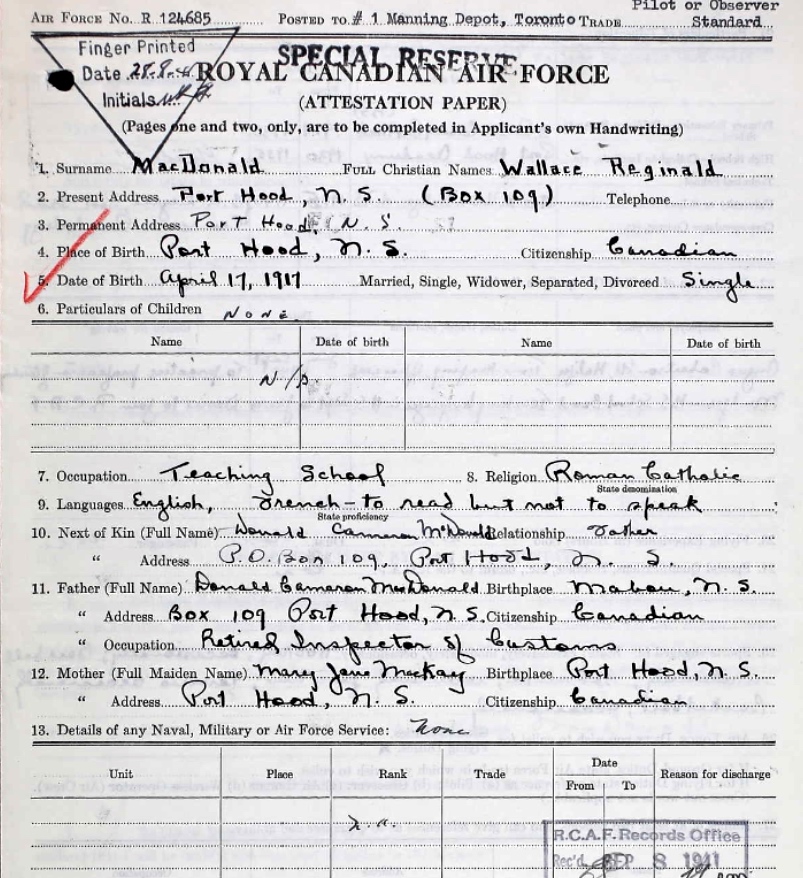 Pilot or Observer
AIR FORCE NO. R 124685 POSTED TO # 1 Manning Depot, Toronto TRADE Standard
Finger Printed
Date 28.8.41
Initials
SPECIAL RESERVE
ROYAL CANADIAN AIR FORCE
(ATTESTATION PAPER)
(Pages one and two, only, are to be completed in Applicant's own Handwriting)
1. Surname MacDonald FULL Christian Names Wallace Reginald
2. Present Address Port Hood, N. S. (Box 109) Telephone
3. Permanent Address Port Hood, N. S.
4. Place of Birth Port Hood, N. S. Citizenship Canadian
5. Date of Birth April 17, 1917 Married, Single, Widower, Separated, Divorced Single
6. Particulars of Children None.
Name Date of birth Name Date of birth
7. Occupation Teaching School 8. Religion Roman Catholic
State denomination
9. Languages English, French - to read but not to speak
State proficiency
10. Next of Kin (Full Name) Donald Cameron McDonald Relationship Father
" Address P.O. Box 109, Port Hood, N. S.
11. Father (Full Name) Donald Cameron MacDonald Birthplace Mabou, N. S.
" Address Box 109 Port Hood, N. S. Citizenship Canadian
" Occupation Retired Inspector of Customs
12. Mother (Full Maiden Name) Mary Jane MacKay Birthplace Port Hood, N. S.
" Address Port Hood, N. S. Citizenship Canadian
13. Details of any Naval, Military or Air Force Service: None
Unit Place Rank Trade Date From To Reason for discharge
n.a.
R.C.A.F. Records Office
Rec'd SEP 8 1941